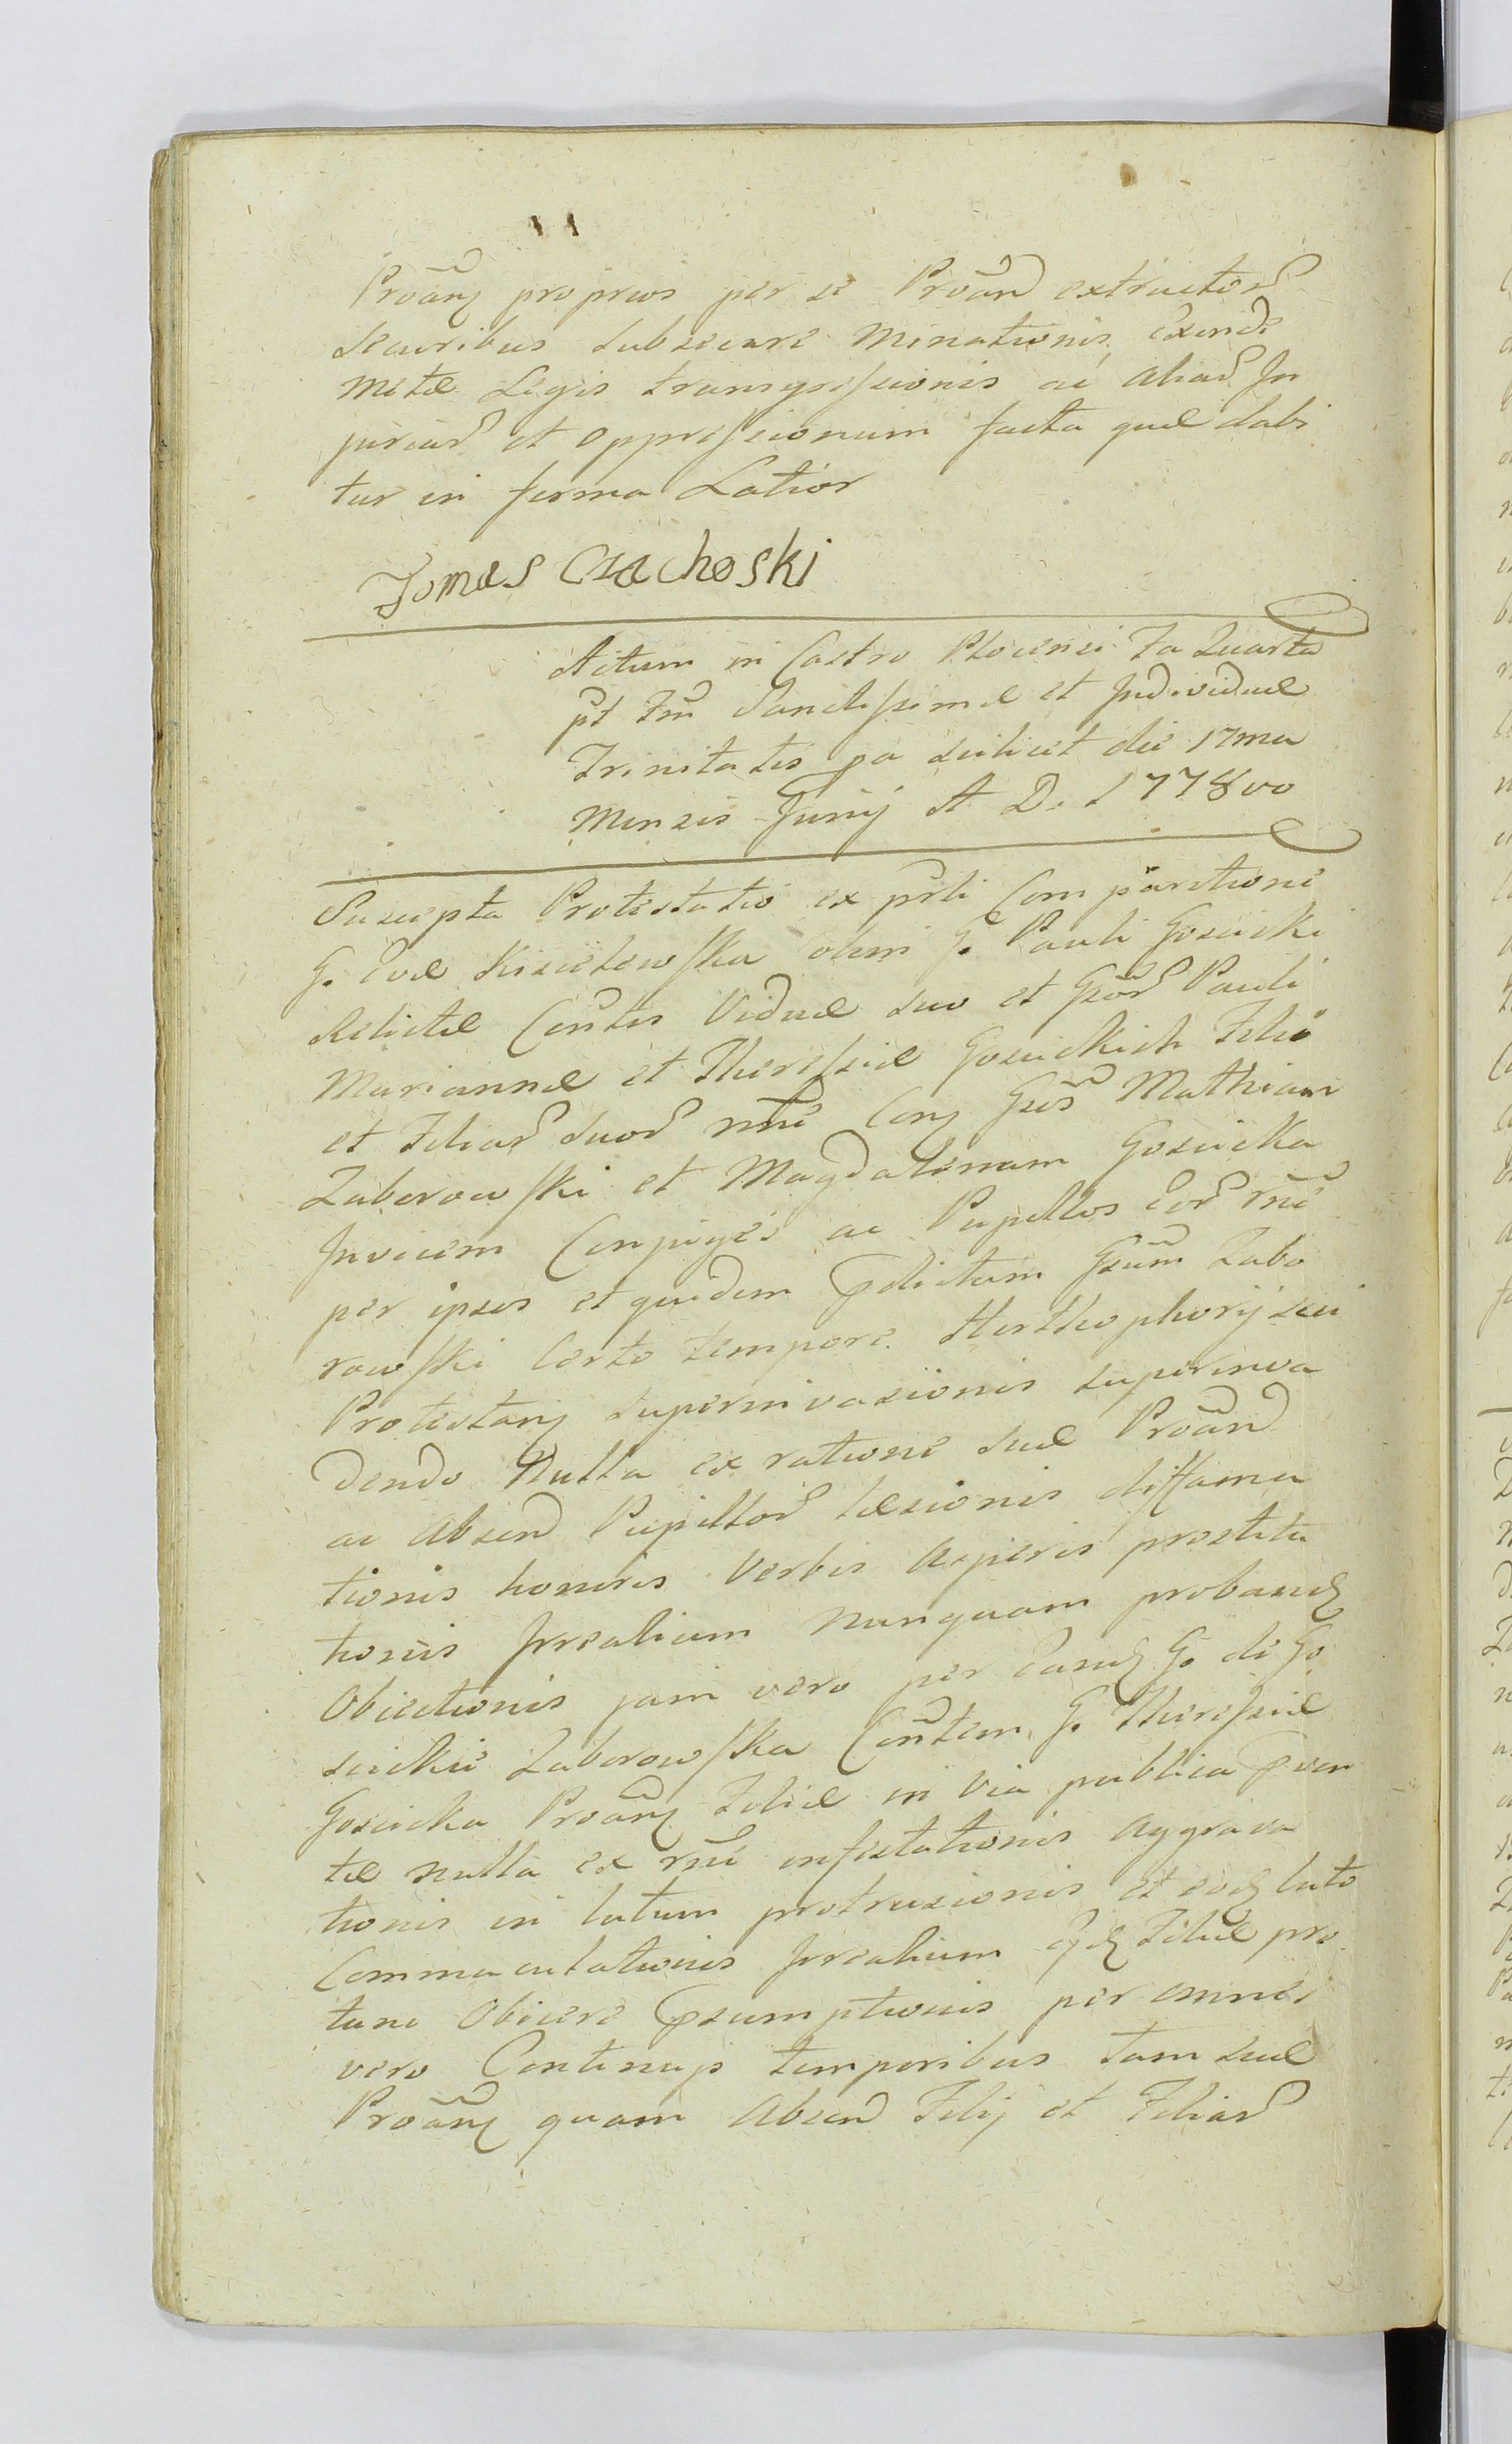 Proãnt proprios per se Proãnd extructor
securibus subsecare minationis exinde
metæ Legis transgressionis ac aliar In
juriar et oppressionum facta quæ dabi
tur in forma Latior
Tomas Czachoski
Actum in Castro Plocensi Fa Quarta
pt Fm Sanctissimæ et Individuæ
Trinitatis pa scilicet die 17ma
Mensis Junij A D. 1778vo
Suscepta Protestatio ex prli Comparitione
G. Evæ Kisielewska olim G. Pauli Goscicki
Relictæ Consrtis Viduæ suo et Gsor Pauli
Mariannæ et Theressiæ Goscickich Filio
et Filiar suor nne Cont Gsos Mathiam
Zaborowski et Magdalenam Goscicka
Invicem Conjuges ac Pupillos Eor rne
per ipsos et quidem pdictum Gsum Zabo
rowski certo tempore Horthophorij sui
Protestant superinvasionis superinva
dendo Nulla ex ratione suæ Proand
ac absend Pupillor læsionis diffama
tionis honoris verbis asperis prostitu
tionis Irrealium nunquam proband
Obiectionis jam vero per eand G. de Go
scickie Zaborowska Contem G. Theressiæ
Goscicka Proant Filiæ in via publica pven
tæ nulla ex rne infestationis aggrava
tionis in lutum protrusionis et eod luto
Commaculationis Irrealium ejd Filiæ pro
tunc Obicere psumptionis per omnes
vero Continuis temporibus tam suæ
Proant quam absend Filij et Filiar